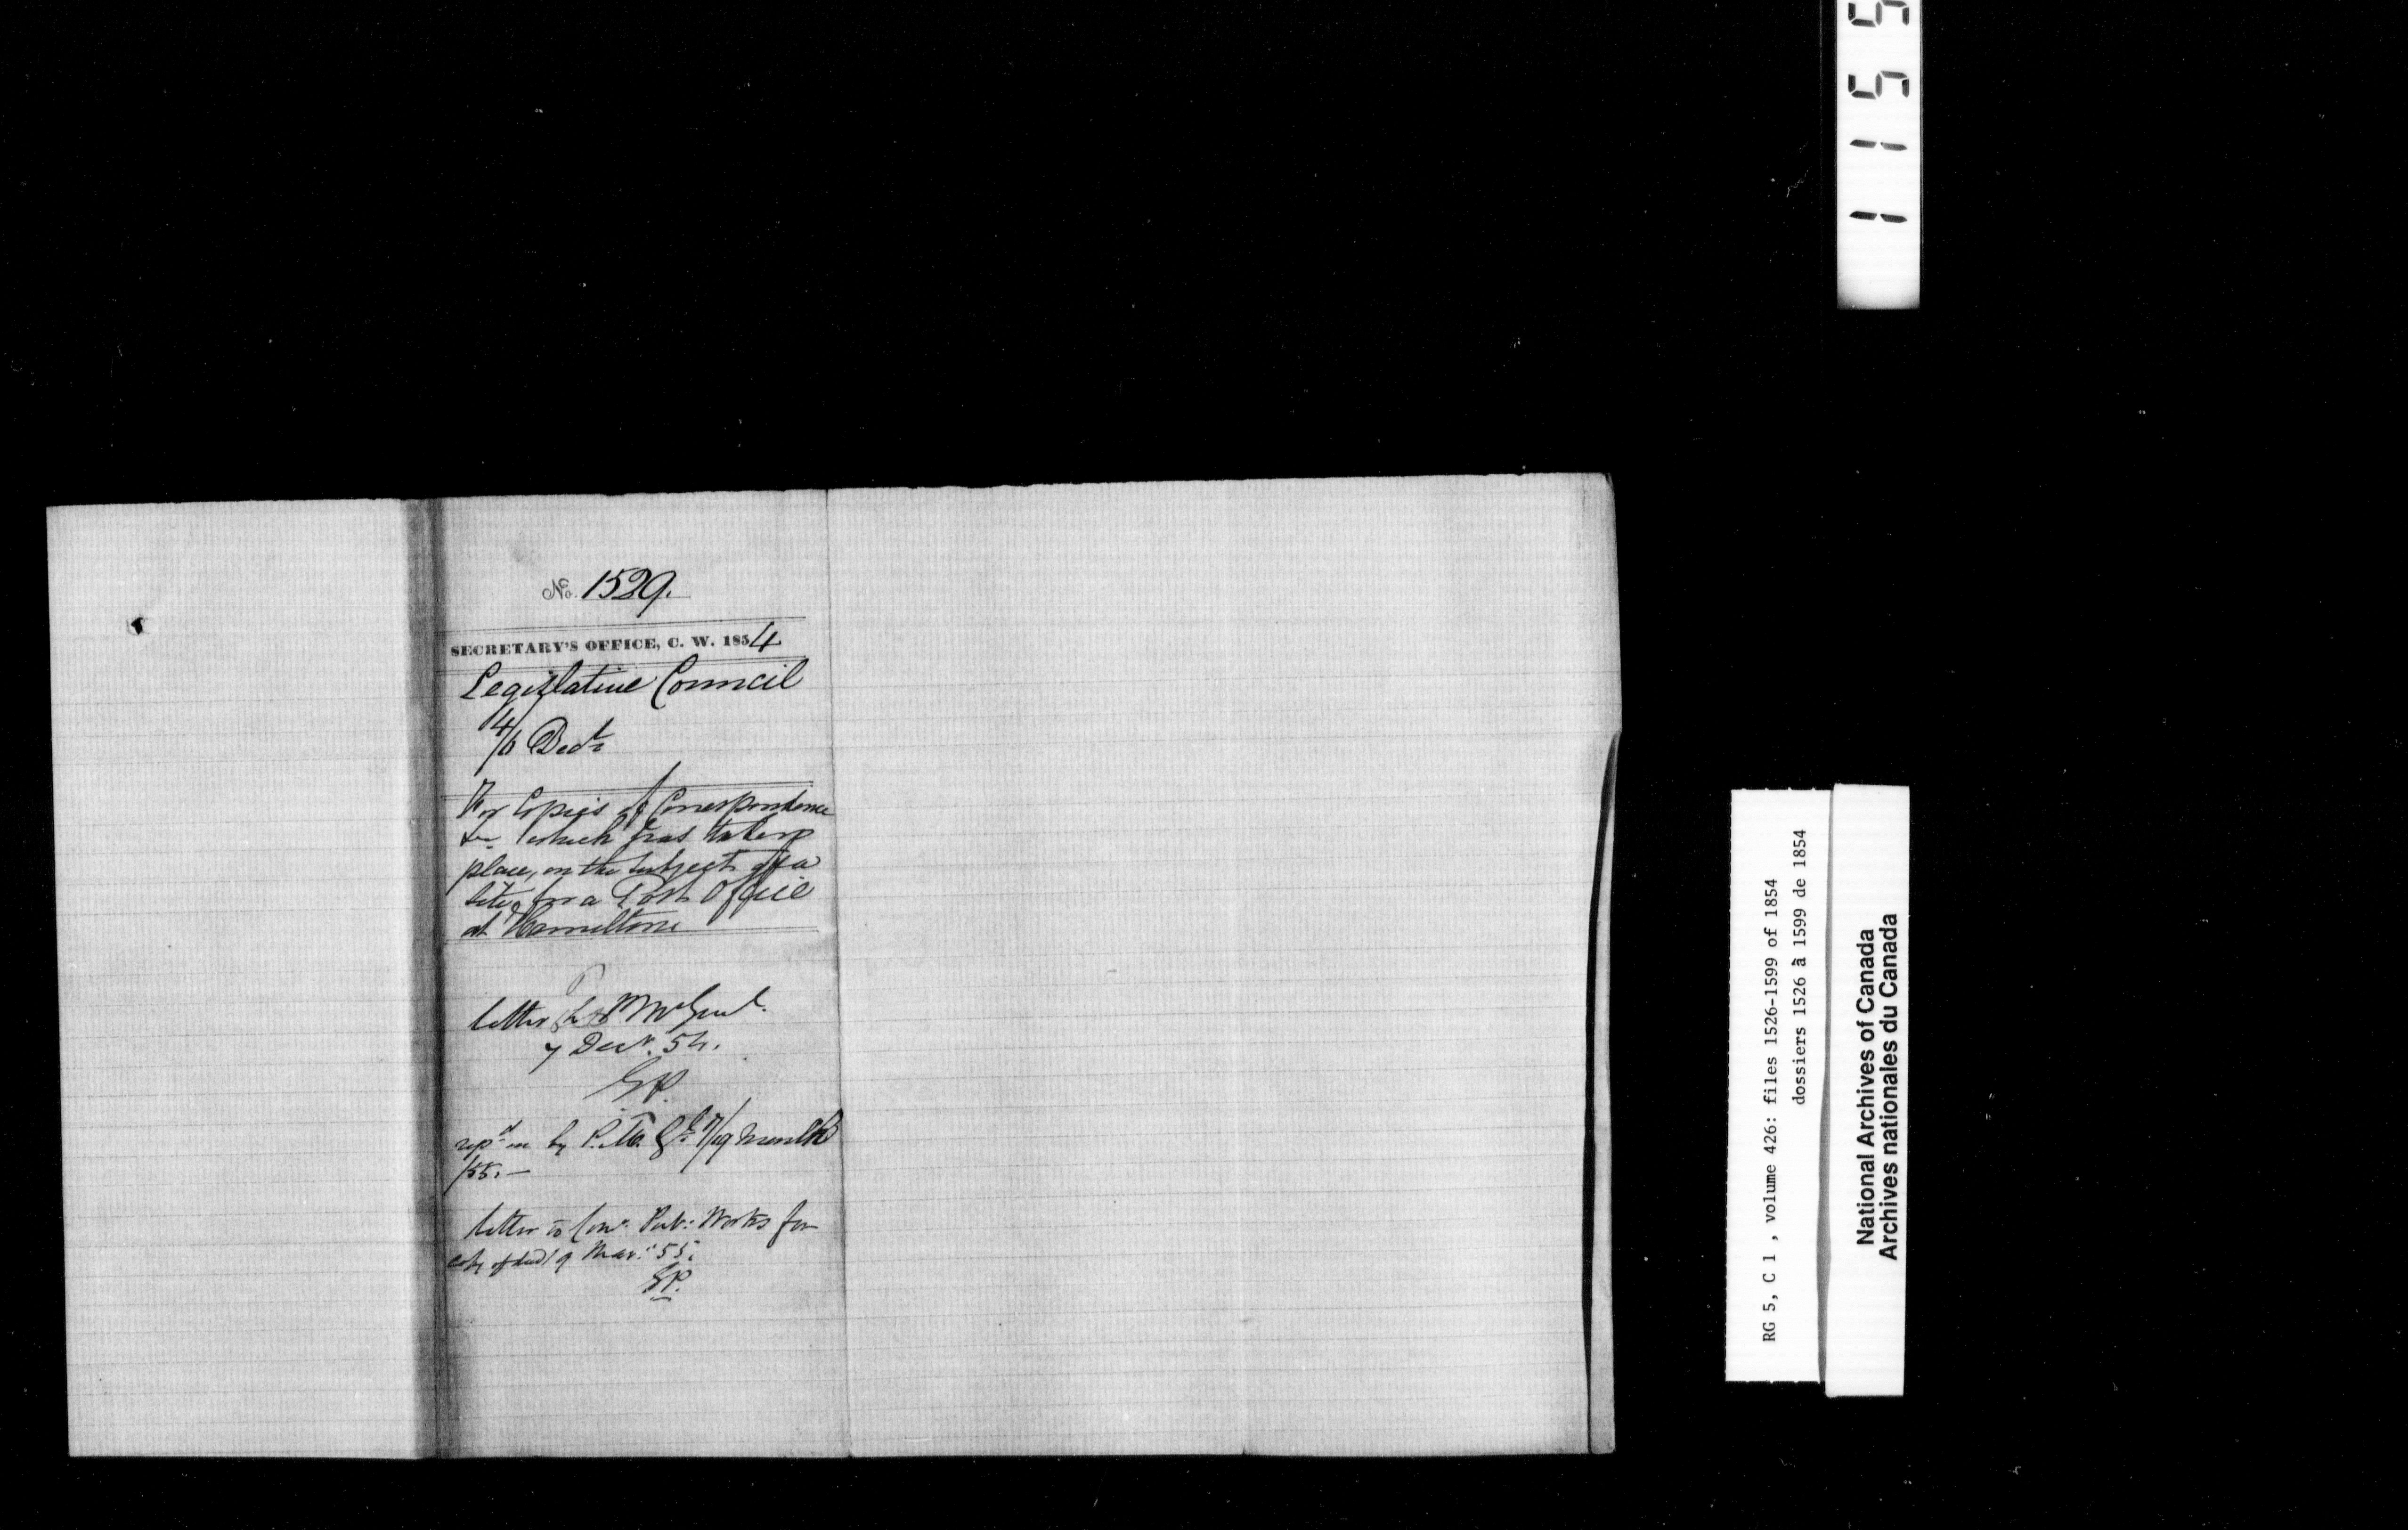 No. 1529.
SECRETARY'S OFFICE, C. W. 1854
Legislative Council
4/6 Decr
For Copies of Correspondence
&c. which has taken
place, on the subject of a
Site for a Post Office
at Hamilton
letter to P M Genl.
7 Decr. 54.
GP.
repd on by P. M. Gl 7/9 March
/55. —
letter to Comr. Pub: Works for
copy of deed 9 Mar: 55.
GP.
1155
RG 5, C 1 , volume 426: files 1526-1599 of 1854
dossiers 1526 à 1599 de 1854
National Archives of Canada
Archives nationales du Canada